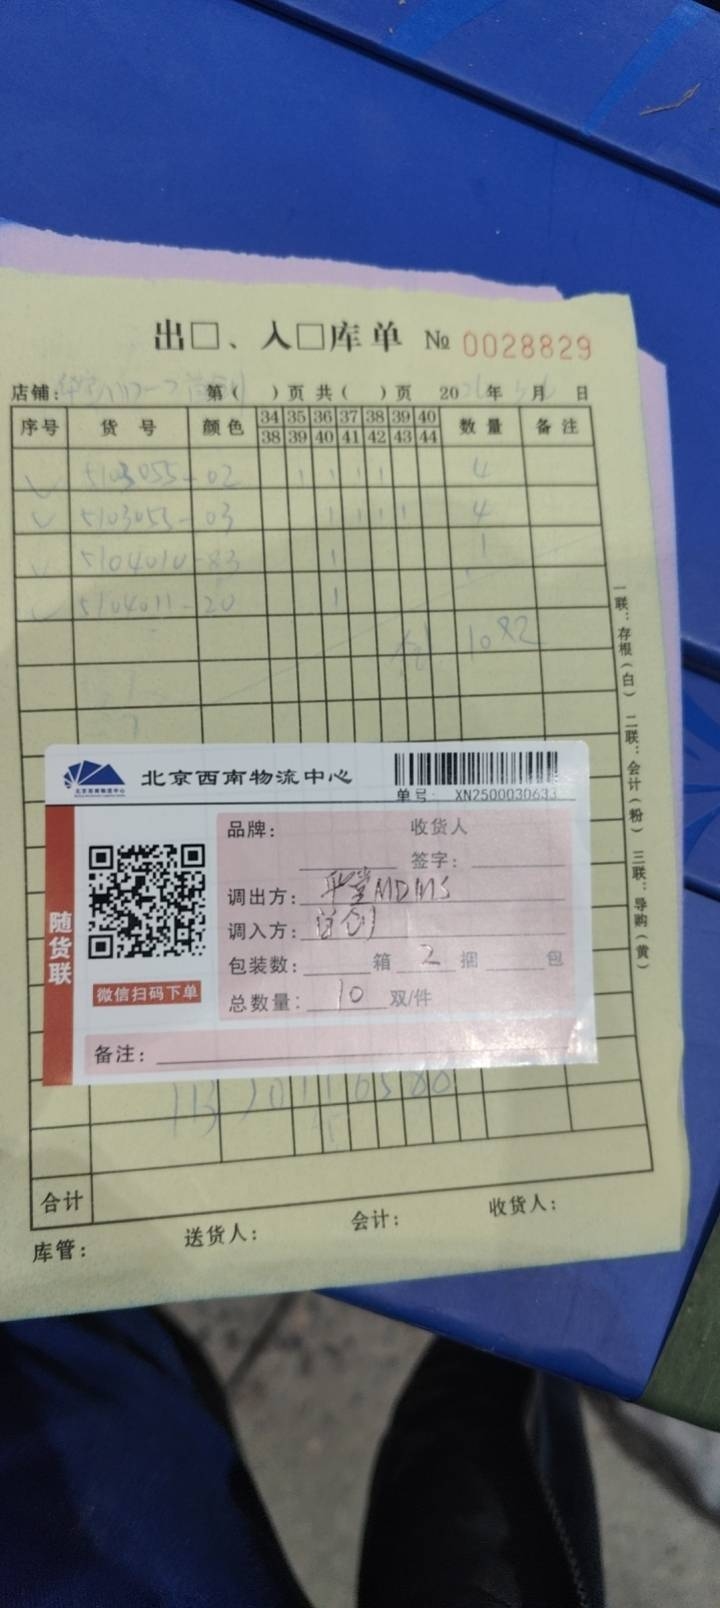 出□、入□库单 № 0028829
店铺： 第（ ）页 共（ ）页 20 年 月 日
序号 货号 颜色 34 35 36 37 38 39 40 数量 备注
38 39 40 41 42 43 44
5103055-02 1 1 1 1 4
5103055-03 1 1 1 1 4
5104010-83 1 1
5104011-20 1
10
一联：存根（白） 二联：会计（粉） 三联：导购（黄）
北京西南物流中心
单号: XN2500030633
随货联
微信扫码下单
品牌： 收货人
签字：
调出方： MDMS
调入方： 首创
包装数： 箱 2 捆 包
总数量： 10 双/件
备注：
合计
库管： 送货人： 会计： 收货人：